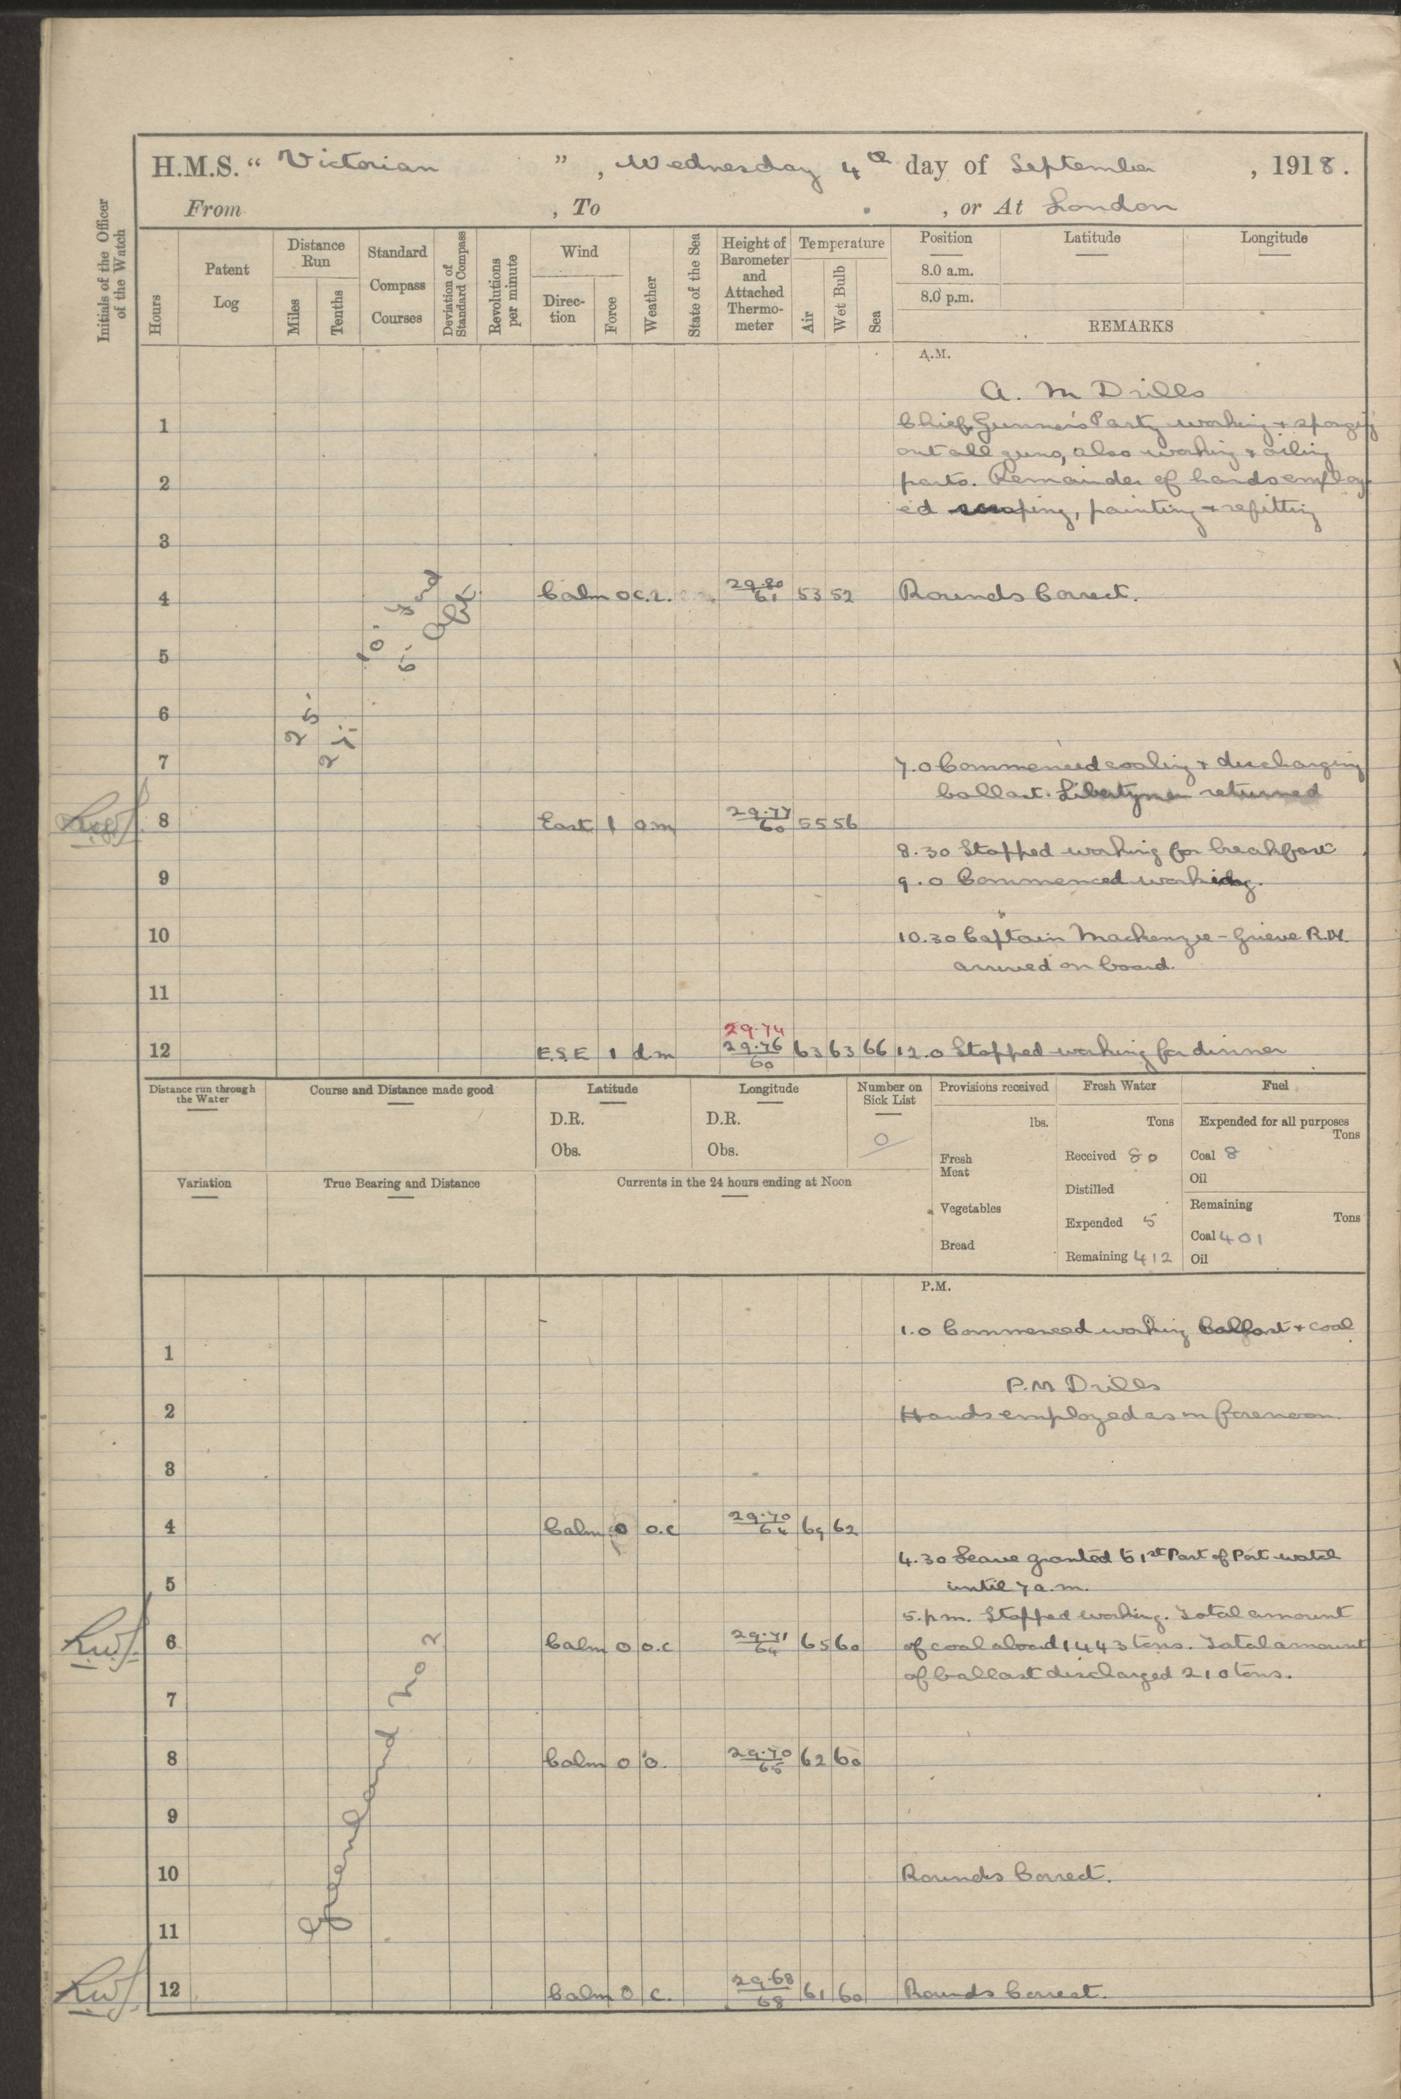 H.M.S. “ Victorian ” , Wednesday 4th day of September , 1918.
From , To , or At London
Initials of the Officer of the Watch
Hours
Patent Log
Distance Run
Miles
Tenths
Standard Compass Courses
Deviation of Standard Compass
Revolutions per minute
Wind
Direc-tion
Force
Weather
State of the Sea
Height of Barometer and Attached Thermo-meter
Temperature
Air
Wet Bulb
Sea
Position Latitude Longitude
8.0 a.m.
8.0 p.m.
REMARKS
A.M.
A. M Drills
1 Chief Gunner's Party working & sponging
out all guns, also working & oiling
2 parts. Remainder of hands employ-
ed scraping, painting & refitting
3
4 Calm 0 c.r. 29.80 61 53 52 Rounds Correct.
10' Fwd
6' Aft
5
6
25'
21'
7 7.0 Commenced coaling & discharging
ballast. Libertymen returned
8 East 1 o.m 29.77 60 55 56
8.30 Stopped working for breakfast
9 9.0 Commenced working.
10 10.30 Captain Mackenzie-Grieve R.N.
arrived on board.
11
29.74
12 E.S.E 1 d.m 29.76 60 63 63 66 12.0 Stopped working for dinner
Distance run through the Water
Course and Distance made good
Latitude
D.R.
Obs.
Longitude
D.R.
Obs.
Number on Sick List
0
Provisions received
lbs.
Fresh Meat
Vegetables
Bread
Fresh Water
Tons
Received 80
Distilled
Expended 5
Remaining 412
Fuel
Expended for all purposes
Tons
Coal 8
Oil
Remaining
Tons
Coal 401
Oil
Variation
True Bearing and Distance
Currents in the 24 hours ending at Noon
P.M.
1.0 Commenced working ballast & coal
1
P.M Drills
2 Hands employed as in forenoon.
3
4 Calm 0 o.c 29.70 64 69 62
4.30 Leave granted to 1st Part of Port watch
5 until 7 a.m.
5.p.m. Stopped working. Total amount
6 Calm 0 o.c 29.71 64 65 60 of coal aboard 1443 tons. Total amount
of ballast discharged 210 tons.
7
8 Calm 0 o. 29.70 65 62 60
9
Greenland No 2
10 Rounds Correct.
11
12 Calm 0 c. 29.68 68 61 60 Rounds Correct.